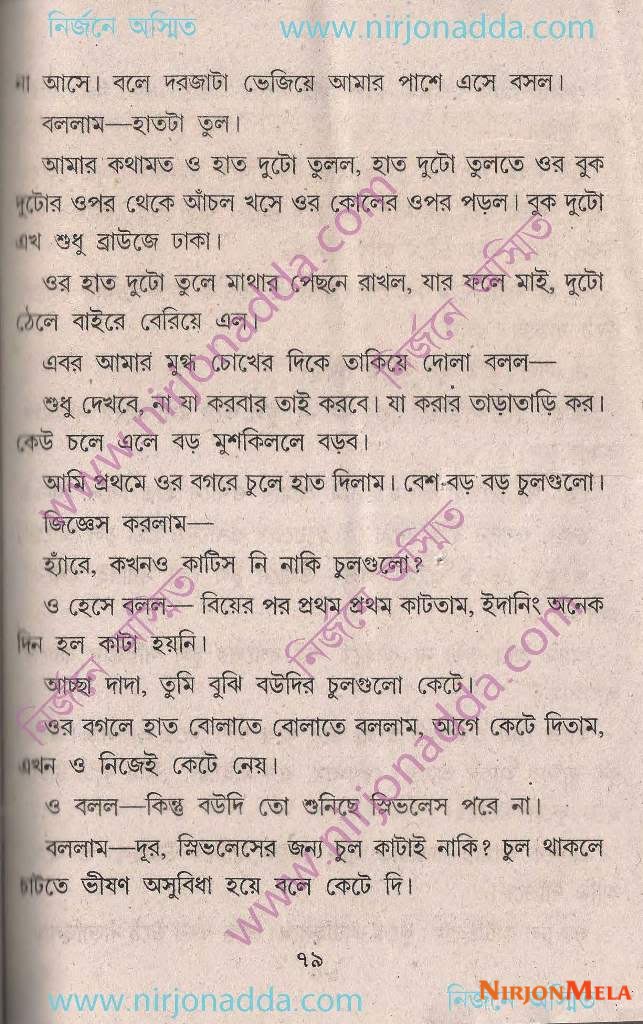 নির্জনে অস্মিত www.nirjonadda.com
না আসে। বলে দরজাটা ভেজিয়ে আমার পাশে এসে বসল।
বললাম—হাতটা তুল।
আমার কথামত ও হাত দুটো তুলল, হাত দুটো তুলতে ওর বুক
দুটোর ওপর থেকে আঁচল খসে ওর কোলের ওপর পড়ল। বুক দুটো
এখ শুধু ব্রাউজে ঢাকা।
ওর হাত দুটো তুলে মাথার পেছনে রাখল, যার ফলে মাই, দুটো
ঠেলে বাইরে বেরিয়ে এল।
এবর আমার মুগ্ধ চোখের দিকে তাকিয়ে দোলা বলল—
শুধু দেখবে, না যা করবার তাই করবে। যা করার তাড়াতাড়ি কর।
কেউ চলে এলে বড় মুশকিললে বড়ব।
আমি প্রথমে ওর বগরে চুলে হাত দিলাম। বেশ বড় বড় চুলগুলো।
জিজ্ঞেস করলাম—
হ্যাঁরে, কখনও কাটিস নি নাকি চুলগুলো?
ও হেসে বলল— বিয়ের পর প্রথম প্রথম কাটতাম, ইদানিং অনেক
দিন হল কাটা হয়নি।
আচ্ছা দাদা, তুমি বুঝি বউদির চুলগুলো কেটে।
ওর বগলে হাত বোলাতে বোলাতে বললাম, আগে কেটে দিতাম,
এখন ও নিজেই কেটে নেয়।
ও বলল—কিন্তু বউদি তো শুনিছে স্লিভলেস পরে না।
বললাম—দূর, স্লিভলেসের জন্য চুল কাটাই নাকি? চুল থাকলে
চাটতে ভীষণ অসুবিধা হয়ে বলে কেটে দি।
৭৯
www.nirjonadda.com নির্জনে অস্মিত
NIRJONMELA
www.nirjonadda.com
নির্জনে অস্মিত
নির্জনে অস্মিত
নির্জনে অস্মিত
www.nirjonadda.com